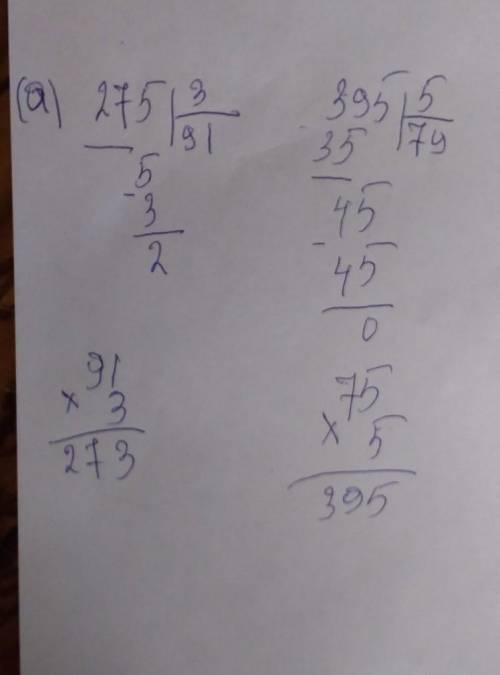 (a) 275 3
91
5
- 3
2
91
× 3
273
395 5
79
35
45
- 45
0
75
× 5
395